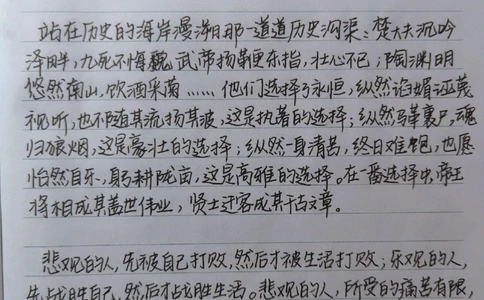 站在历史的海岸漫溯那一道道历史沟渠：楚大夫沉吟
泽畔，九死不悔；魏武帝扬鞭东指，壮心不已；陶渊明
悠然南山，饮酒采菊……他们选择了永恒，纵然谄媚诬蔑
视听，也不随其流扬其波，这是执著的选择；纵然马革裹尸，魂
归狼烟，这是豪壮的选择；纵然一身清苦，终日难饱，也愿
怡然自乐，躬耕陇亩，这是高雅的选择。在一番选择中，帝王
将相成其盖世伟业，贤士迁客成其千古文章。
悲观的人，先被自己打败，然后才被生活打败；乐观的人，
先战胜自己，然后才战胜生活。悲观的人，所受的痛苦有限，